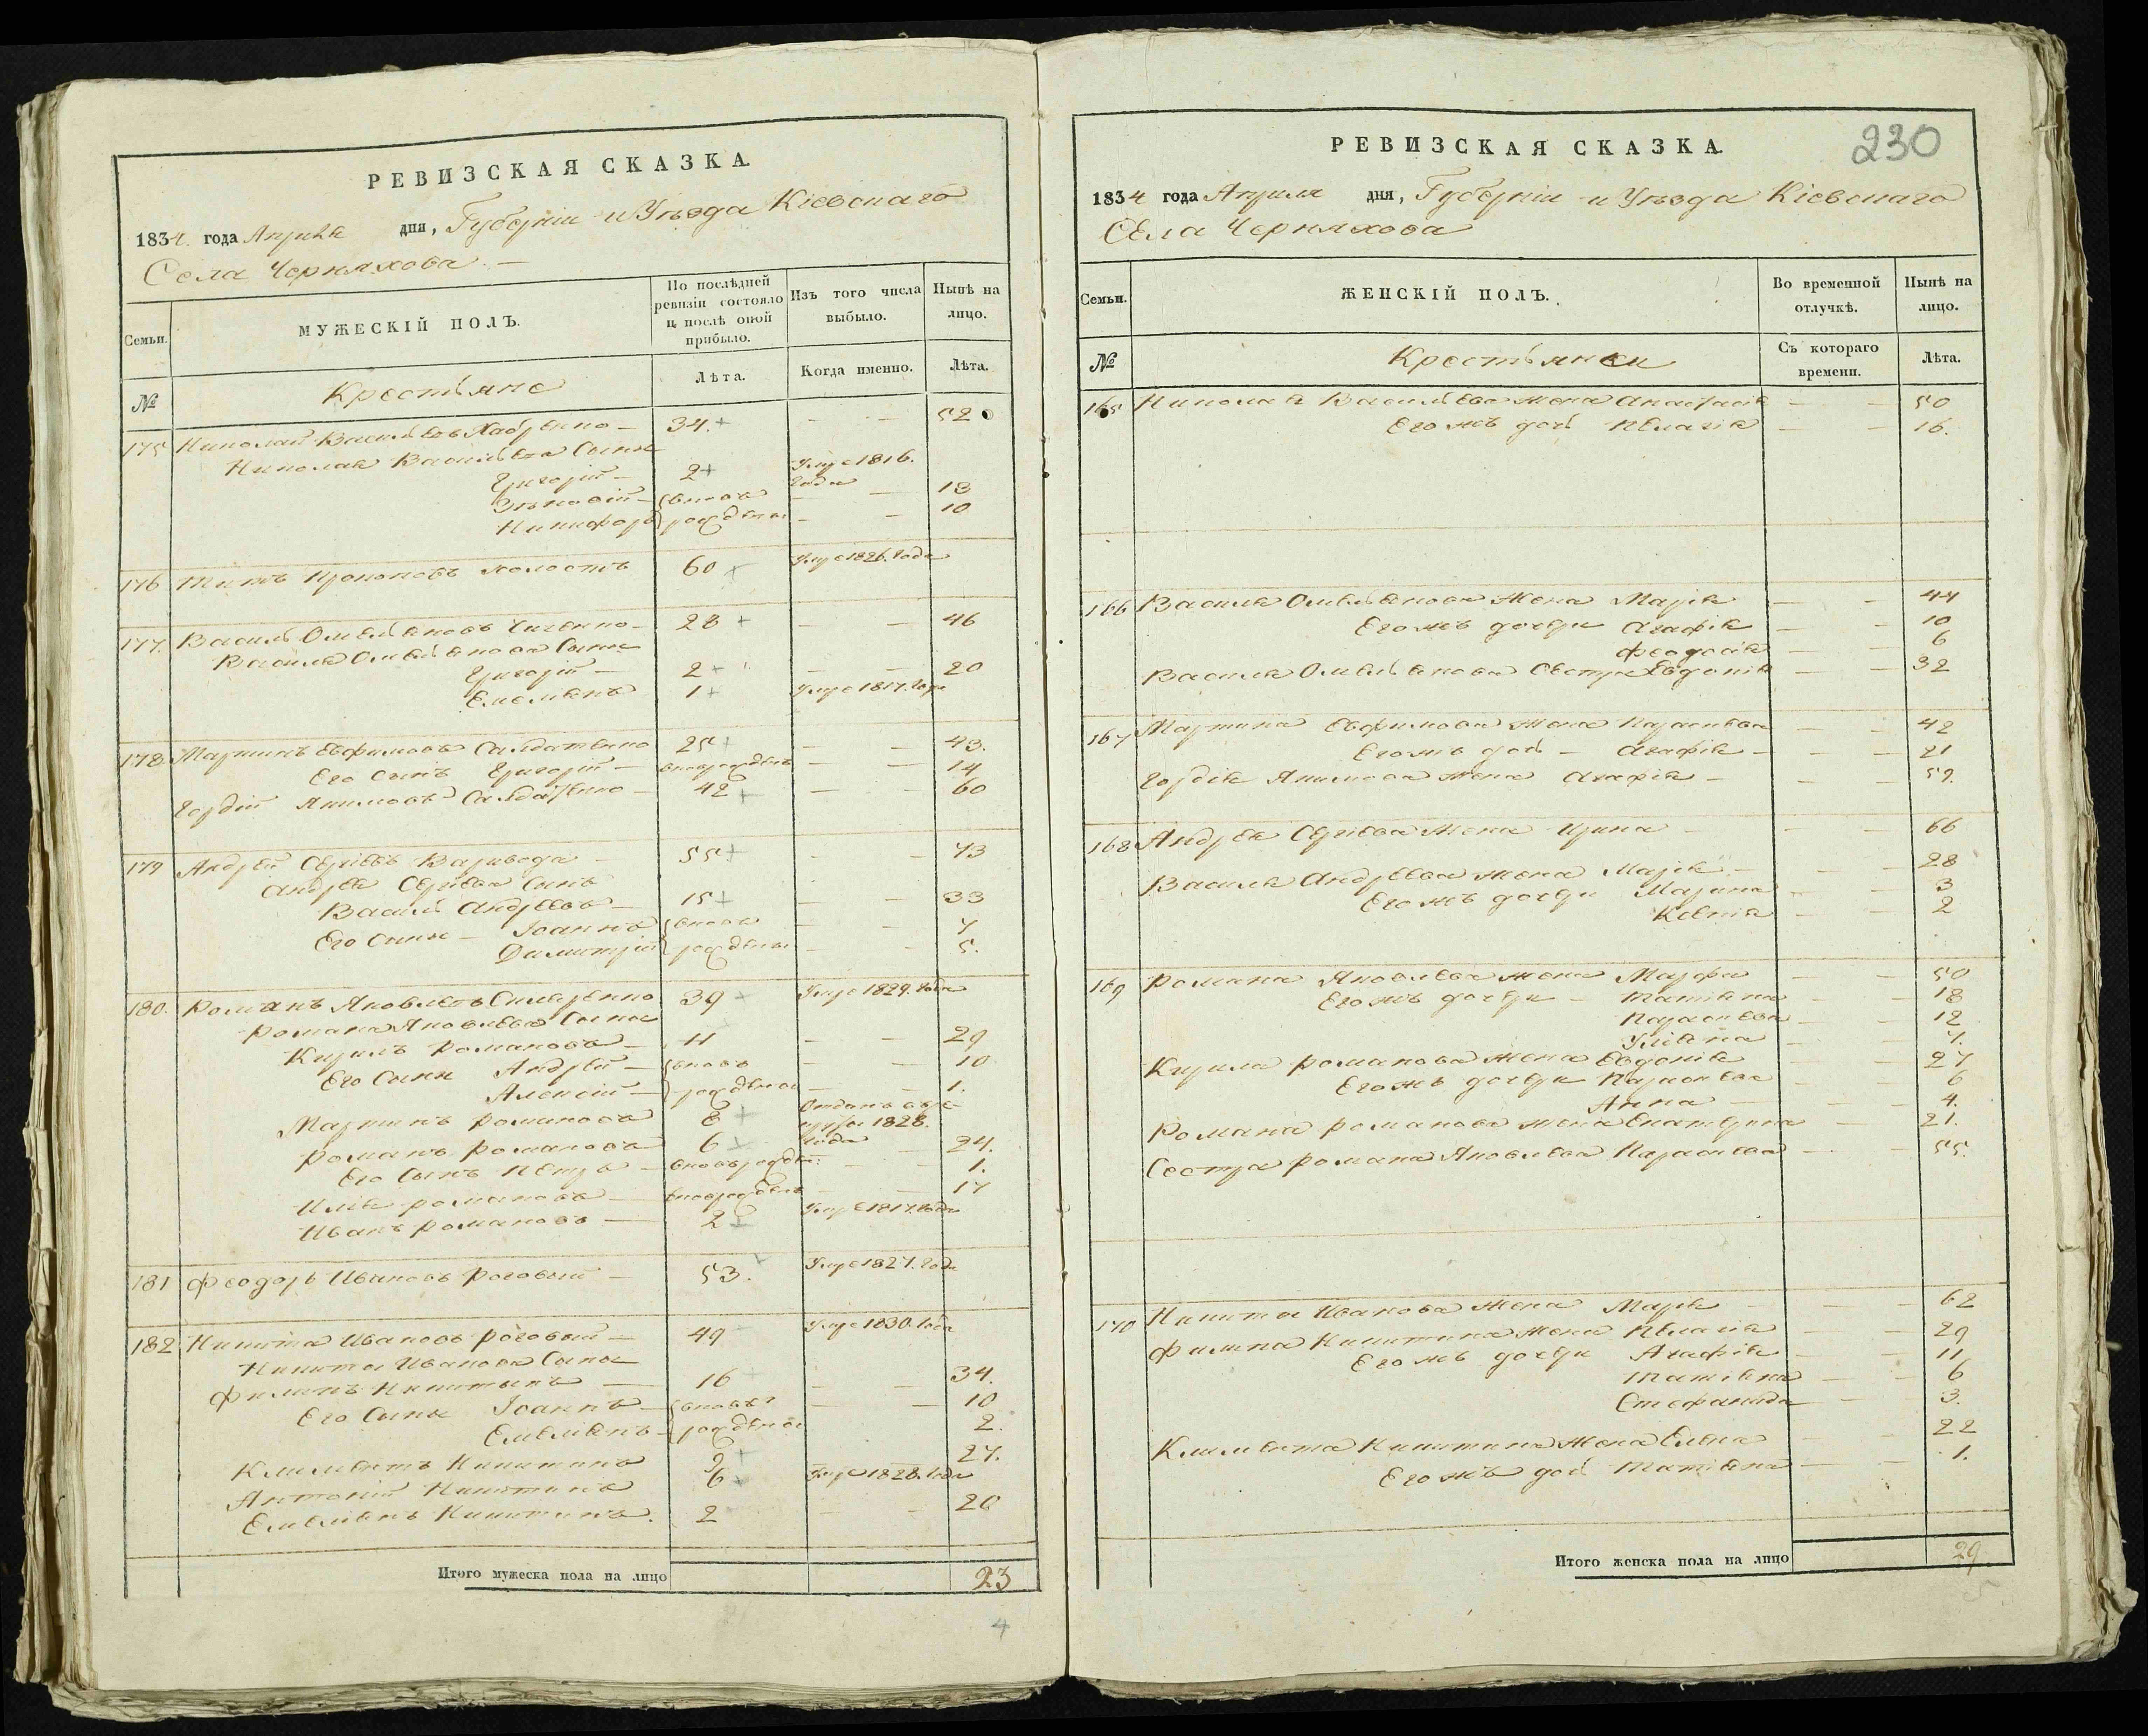 РЕВИЗСКАЯ СКАЗКА.
1834. года Априля дня, Губерніи и Уѣзда Кіевскаго
Села Черняхова
Семьи. МУЖЕСКІЙ ПОЛЪ. По послѣдней ревизіи состояло и послѣ оной прибыло. Изъ того числа выбыло. Нынѣ на лицо.
№ Крестьяне Лѣта. Когда именно. Лѣта.
175 Николай Васильевъ 34. 52
Николая Васильева Сыны
Григорій 2 Умре 1816. года
Зѣновій вновь 18
Никифоръ рожденны 10
176 Титъ Прокоповъ холостъ 60 Умре 1826. года
177. Василь Омельяновъ 28 46
Василя Омельянова Сыны
Григорій 2 20
Емельянъ 1 Умре 1817. года
178. Мартинъ Евфимовъ Салдатенко 25 43.
Его Сынъ Григорій вноврожденъ 14
Гордій Якимовъ Салдатенко 42 60
179 Андрей Сергіевъ Варивода 55 73
Андрея Сергіева Сынъ
Василь Андреевъ 15 33
Его Сыны Іоаннъ вновь 7
Димитрій рожденны 5.
180. Романъ Яковлевъ Симеренко 39 Умре 1829. года
Романа Яковлева Сыны
Кирилъ Романовъ 11 29
Его Сыны Андрей вновь 10
Алексій рожденны 1.
Мартинъ Романовъ 8 Отданъ въ рекруты 1828. года
Романъ Романовъ 6 24.
Его Сынъ Петръ вноврожден: 1.
Илія Романовъ вноврожденъ 17
Иванъ Романовъ 2 Умре 1817. года
181 Феодоръ Ивановъ Роговый 53. Умре 1827. года
182 Никита Ивановъ Роговый 49 Умре 1830. года
Никиты Иванова Сыны
Филипъ Никитинъ 16 34.
Его Сыны Іоаннъ вновь 10
Емельянъ рожденны 2.
Климентъ Никитинъ 9 27.
Антоній Никитинъ 6 Умре 1828. года
Емельянъ Никитинъ. 2 20
Итого мужеска пола на лицо 23
4
230
РЕВИЗСКАЯ СКАЗКА.
1834 года Априля дня, Губерніи и Уѣзда Кіевскаго
Села Черняхова
Семьи. ЖЕНСКІЙ ПОЛЪ. Во временной отлучкѣ. Нынѣ на лицо.
№ Крестьянки Съ котораго времени. Лѣта.
165 Николая Васильева жена Анастасія 50
Его жъ дочь Пелагія 16.
166 Василя Омельянова жена Марія 44
Его жъ дочери Агафія 10
Феодосія 6
Василя Омельянова Сестра Евдокія 32
167 Мартина Евфимова жена Параскева 42
Его жъ дочь Агафія 21
Гордія Якимова жена Агафія 59.
168 Андрея Сергіева жена Ирина 66
Василя Андреева жена Марія 28
Его жъ дочери Марина 3
Ксенія 2
169 Романа Яковлева жена Марфа 50
Его жъ дочери Татіяна 18
Параскева 12
Уліяна 7.
Кирила Романова жена Евдокія 27
Его жъ дочери Параскева 6
Анна 4.
Романа Романова жена Екатерина 21.
Сестра Романа Яковлева Параскева 55.
170 Никиты Иванова жена Марія 62
Филипа Никитина жена Пелагія 29
Его жъ дочери Агафія 11
Татіяна 6
Стефанида 3.
Климента Никитина жена Елена 22
Его жъ дочь Татіяна 1.
Итого женска пола на лицо 29